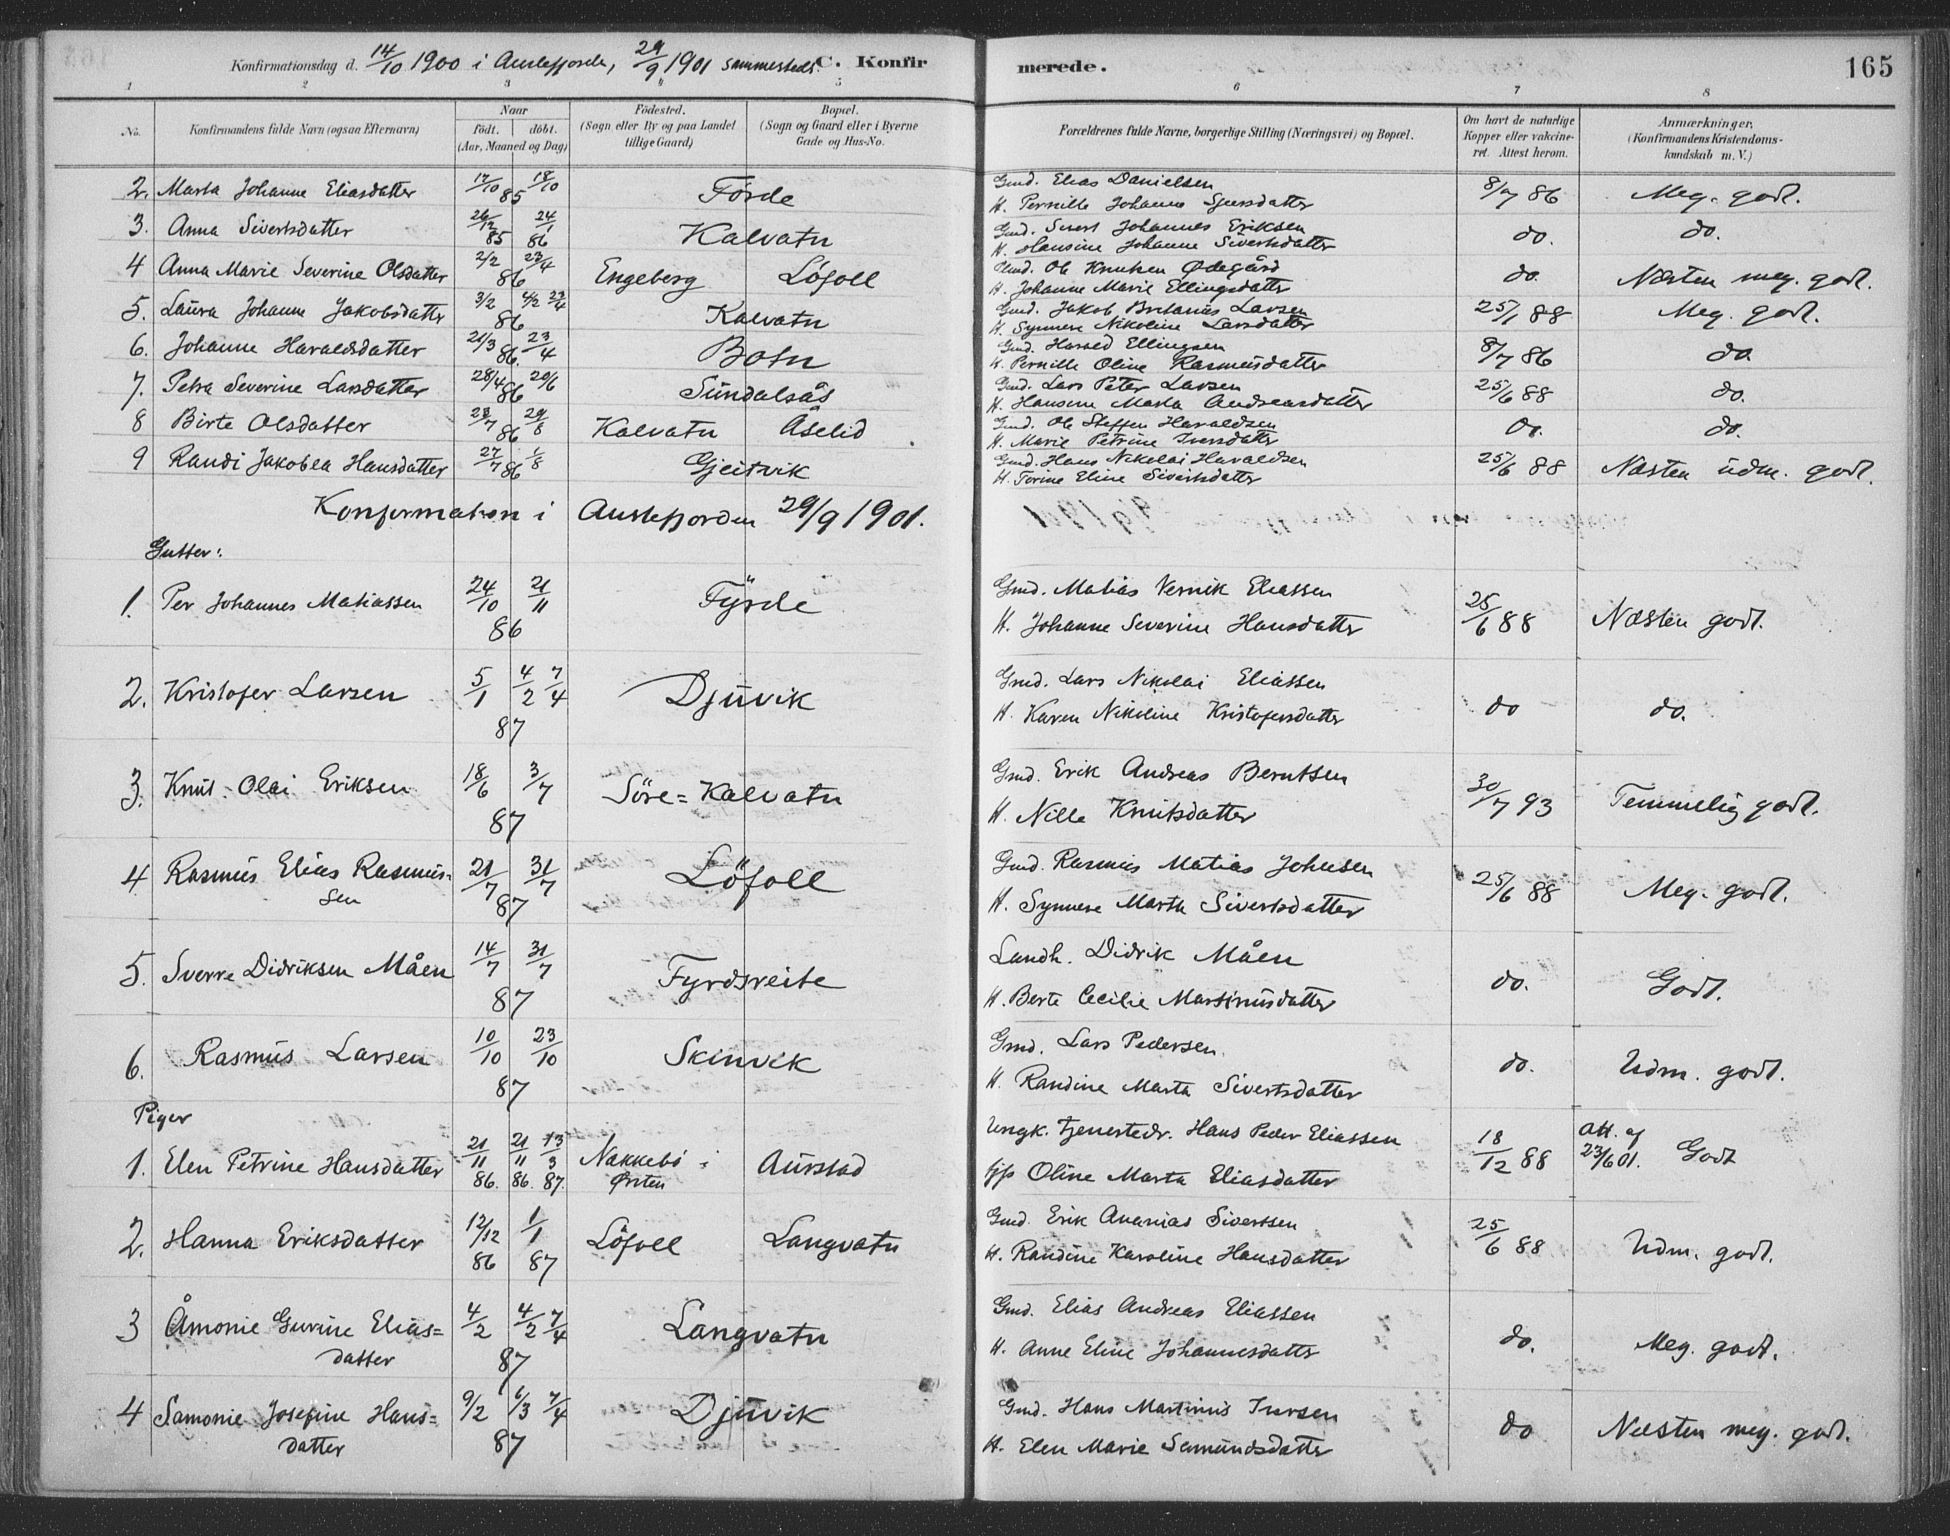 Konfirmationsdag d. 14/10 1900 i Austefjorden, 29/9 1901 sammesteds. C. Konfirmerede. 165
1 2 3 4 5 6 7 8
No. Konfirmandens fulde Navn (ogsaa Efternavn) Naar født. døbt. (Aar, Maaned og Dag) Fødested. (Sogn eller By og paa Landet tillige Gaard) Bopæl. (Sogn og Gaard eller i Byerne Gade og Hus-No. Forældrenes fulde Navne, borgerlige Stilling (Næringsvei) og Bopæl. Om havt de naturlige Kopper eller vakcineret. Attest herom. Anmærkninger, (Konfirmandens Kristendomskundskab m. V.)
2. Marta Johanne Eliasdatter 17/10 18/10 85 Förde Gmd. Elias Danielsen 8/7 86 Meg. godt.
H. Pernille Johanne Sjursdatter
3. Anna Sivertsdatter 26/12 85 24/1 86 Kalvatn Gmd. Sivert Johannes Eriksen do. do.
H. Hansine Johanne Sivertsdatter
4 Anna Marie Severine Olsdatter 2/2 23/4 86 Engeberg Löfoll Gmd. Ole Knutsen Ødegård do. Næsten meg. godt.
H. Johanne Marie Ellingsdatter
5. Laura Johanne Jakobsdatter 3/2 4/2 23/4 86 Kalvatn Gmd. Jakob Larsen 25/1 88 Meg. godt.
H. Synnve Nikoline Larsdatter
6. Johanne Haraldsdatter 21/3 23/4 86. Botn Gmd. Harald Ellingsen 8/7 86 do
H. Pernille Oline Rasmusdatter
7. Petra Severine Larsdatter 28/4 20/6 86 Sündalsås Gmd. Lars Peter Larsen 25/6 88 do.
H. Hansine Marta Andreasdatter
8 Birte Olsdatter 23/7 29/8 86 Kalvatn Åselid Gmd. Ole Steffen Haraldsen do. do.
H. Marie Petrine Iversdatter
9 Randi Jakobea Hansdatter 27/7 1/8 86 Gjeitvik Gmd. Hans Nikolai Haraldsen 25/6 88 Næsten udm. godt.
H. Torine Eline Sivertsdatter
Konfirmation i Austefjorden 29/9 1901.
Gutter:
1. Per Johannes Matiassen 24/10 21/11 86 Fyrde Gmd. Matias Vernik Eliassen 25/6 88 Næsten godt.
H. Johanne Severine Hansdatter
2. Kristofer Larsen 5/1 4/2 7/4 87 Djuvik Gmd. Lars Nikolai Eliassen do do.
H. Karen Nikoline Kristofersdatter
3. Knut Olai Eriksen 18/6 3/7 87 Söre=Kalvatn Gmd. Erik Andreas Berntsen 30/7 93 Temmelig godt.
H. Nille Knutsdatter
4 Rasmus Elias Rasmus- 21/7 31/7 87 Löfoll Gmd. Rasmus Matias Johnsen 25/6 88 Meg. godt.
sen H. Synneve Marta Sivertsdatter
5. Sverre Didriksen Måen 14/7 31/7 87 Fyrdsreite Landh. Didrik Måen do. Godt.
H. Berte Cecilie Martinusdatter
6. Rasmus Larsen 10/10 23/10 87 Skinvik Gmd. Lars Pedersen. do. Udm. godt.
H. Randine Marta Sivertsdatter
Piger
1. Elen Petrine Hansdatter 21/11 86. 21/11 86. 13/3 87. Nakkebö i Ørsten Aurstad Ungk. tjenestedr. Hans Peder Eliassen 18/12 88 Att. af 23/6 01. Godt
Oline Marta Eliasdatter
2. Hanna Eriksdatter 12/12 86 1/1 87 Löfoll Langvatn Gmd. Erik Ananias Sivertsen 25/6 88 Udm. godt.
H. Randine Karoline Hansdatter
3 Åmonie Gurine Elias= 4/2 4/2 7/4 87 Langvatn Gmd. Elias Andreas Eliassen do. Meg. godt.
datter H. Anne Eline Johannesdatter
4 Samonie Josefine Hans= 9/2 6/3 7/4 87 Djuvik Gmd. Hans Martinus Iversen do Næsten meg. godt.
datter H. Elen Marie Samundsdatter